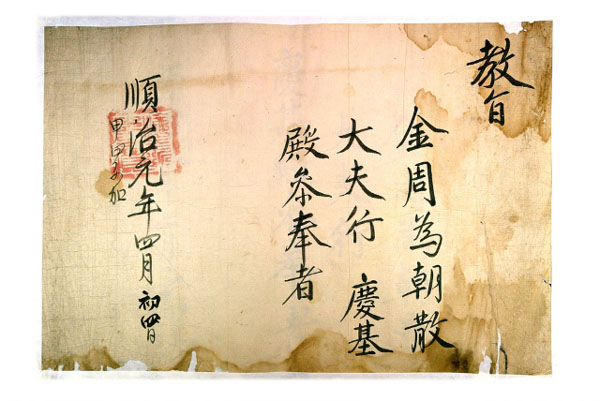 教旨
金周為朝散
大夫行 慶基
殿叅奉者
順治元年四月初四日
甲申別加